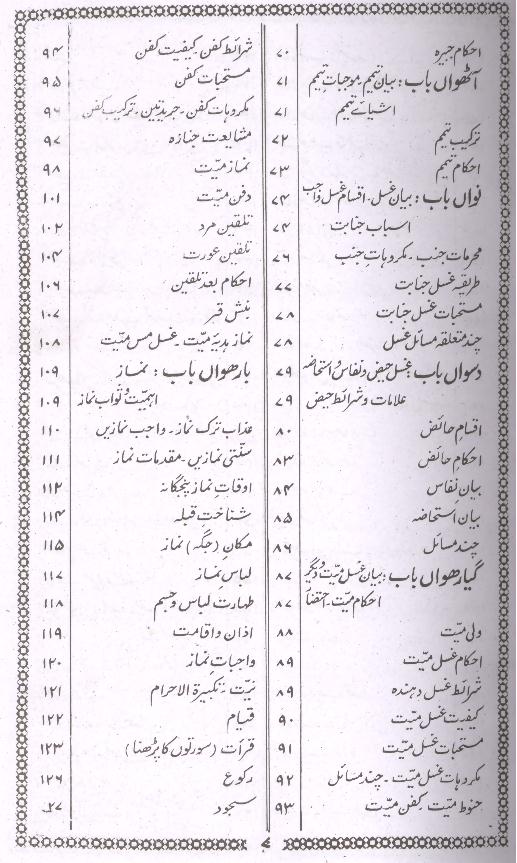 احکام جبیرہ ۷۰
آٹھواں باب : بیان تیمم، موجبات تیمم ۷۱
اشیائے تیمم ۷۱
ترکیب تیمم ۷۲
احکام تیمم ۷۳
نواں باب : بیان غسل۔ اقسام غسل واجب ۷۴
اسباب جنابت ۷۴
محرمات جنب۔ مکروہات جنب ۷۶
طریقہ غسل جنابت ۷۷
مستحبات غسل جنابت ۷۸
چند متعلقہ مسائل غسل ۷۸
دسواں باب : غسل حیض و نفاس و استحاضہ ۷۹
علامات و شرائط حیض ۷۹
اقسام حائض ۸۰
احکام حائض ۸۳
بیان نفاس ۸۴
بیان استحاضہ ۸۵
چند مسائل ۸۶
گیارھواں باب : بیان غسل میّت و دیگر ۸۷
احکام میّت۔ احتضار ۸۷
ولی میّت ۸۸
احکام غسل میّت ۸۹
شرائط غسل دہندہ ۸۹
کیفیت غسل میّت ۹۰
مستحبات غسل میّت ۹۱
مکروہات غسل میّت۔ چند مسائل ۹۲
حنوط میّت۔ کفن میّت ۹۳
شرائط کفن۔ کیفیت کفن ۹۴
مستحبات کفن ۹۵
مکروہات کفن۔ جریدتین۔ ترکیب کفن ۹۶
مشایعت جنازہ ۹۷
نماز میّت ۹۸
دفن میّت ۱۰۱
تلقین مرد ۱۰۲
تلقین عورت ۱۰۴
احکام بعد تلقین ۱۰۶
نبش قبر ۱۰۷
نماز ہدیہ میّت۔ غسل مس میّت ۱۰۸
بارھواں باب : نماز ۱۰۹
اہمیّت و ثواب نماز ۱۰۹
عذاب ترک نماز۔ واجب نمازیں ۱۱۰
سنّتی نمازیں۔ مقدمات نماز ۱۱۱
اوقات نماز پنجگانہ ۱۱۲
شناخت قبلہ ۱۱۴
مکان (جگہ) نماز ۱۱۵
لباس نماز ۱۱۷
طہارت لباس و جسم ۱۱۸
اذان و اقامت ۱۱۹
واجبات نماز ۱۲۰
نیّت۔ تکبیرۃ الاحرام ۱۲۱
قیام ۱۲۲
قرأت (سورتوں کا پڑھنا) ۱۲۳
رکوع ۱۲۶
سجود ۲۷